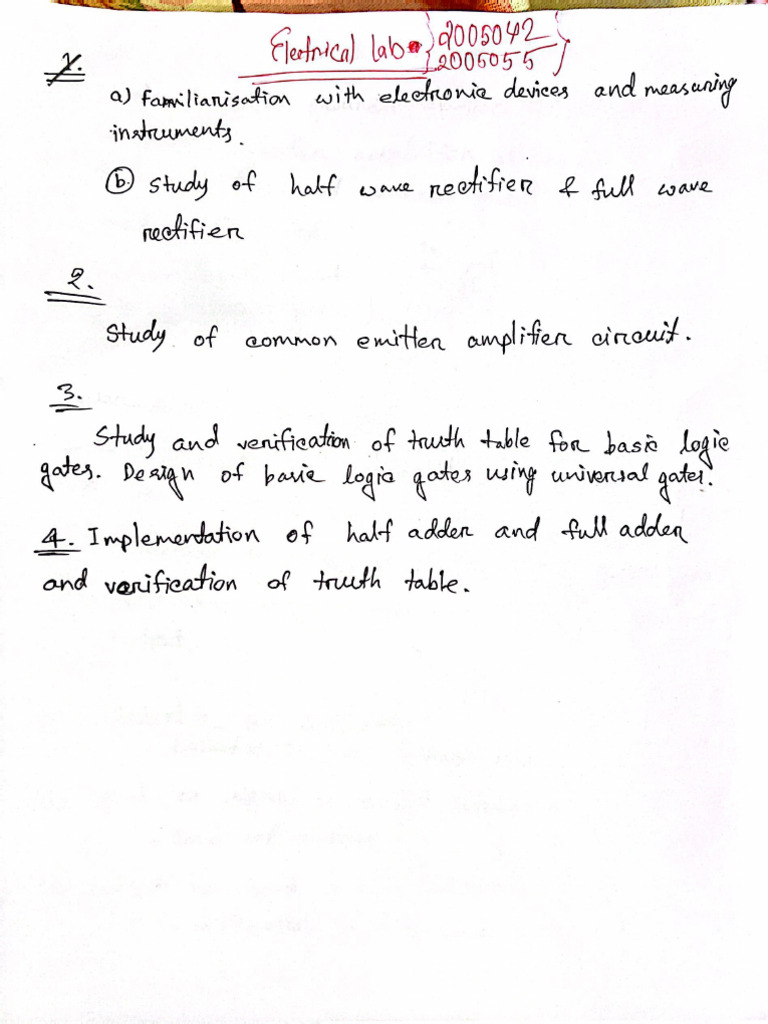 Electrical lab {2005042
2005055}
1.
a) Familiarisation with electronic devices and measuring
instruments.
(b) Study of half wave rectifier & full wave
rectifier
2.
Study of common emitter amplifier circuit.
3.
Study and verification of truth table for basic logic
gates. Design of basic logic gates using universal gates.
4. Implementation of half adder and full adder
and verification of truth table.